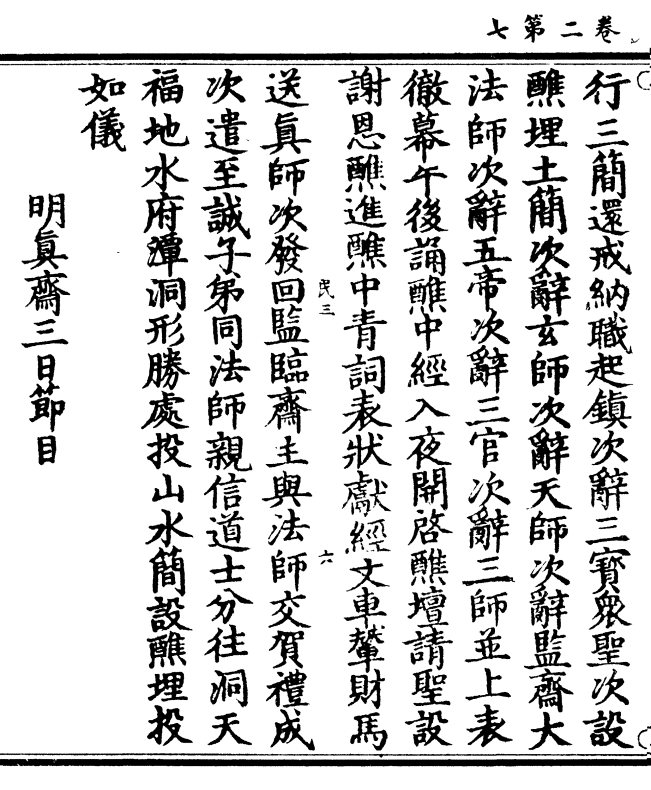 卷二第七
行三簡還戒納職起鎮次辭三寶衆聖次設
醮埋土簡次辭玄師次辭天師次辭監齋大
法師次辭五帝次辭三官次辭三師並上表
徹幕午後誦醮中經入夜開啓醮壇請聖設
謝恩醮進醮中青詞表狀獻經文車輦財馬
民三
六
送眞師次發回監臨齋主與法師交賀禮成
次遣至誠子弟同法師親信道士分往洞天
福地水府潭洞形勝處投山水簡設醮埋投
如儀
明眞齋三日節目